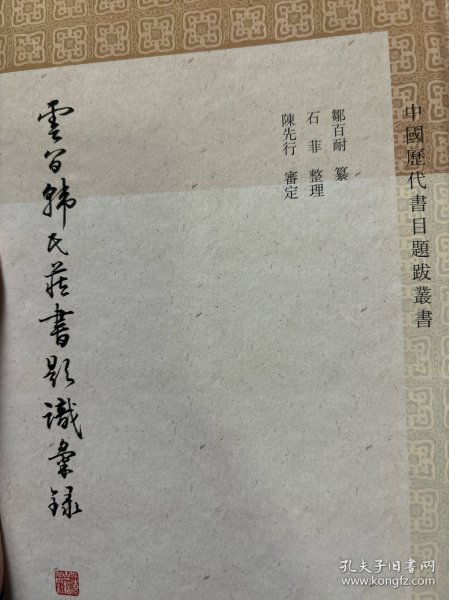 中國歷代書目題跋叢書
鄒百耐 纂
石菲 整理
陳先行 審定
雲間韩氏藏書題識彙録
孔夫子旧书网
www.kongfz.com